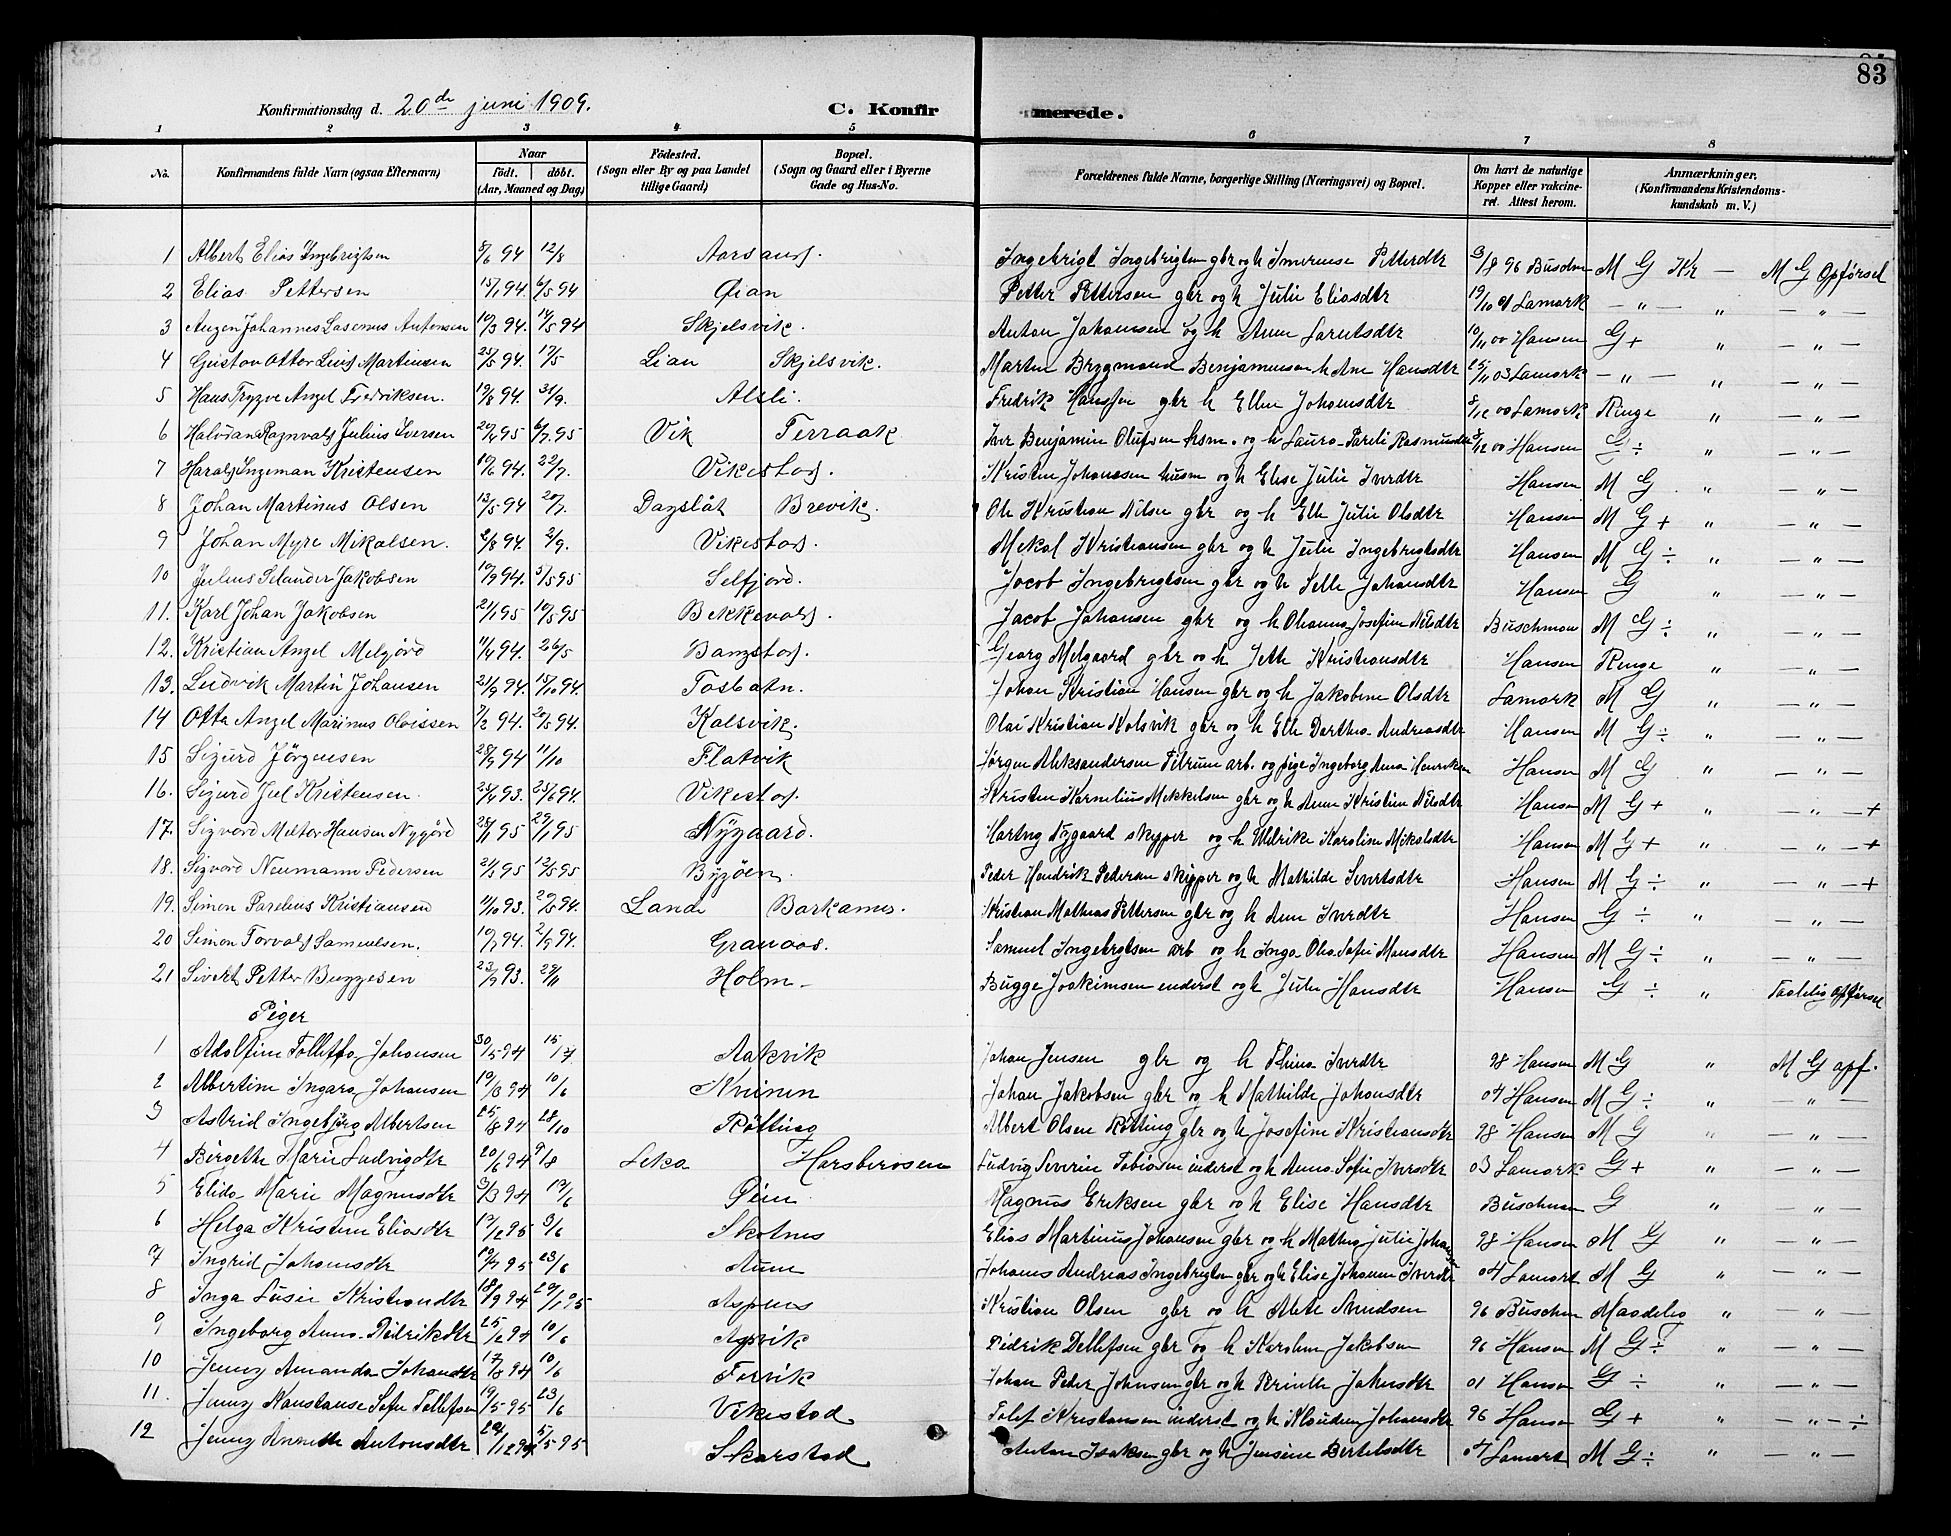 83
Konfirmationsdag d. 20de juni 1909. C. Konfirmerede.
1 2 3 4 5 6 7 8
No. Konfirmandens fulde Navn (ogsaa Efternavn) Naar födt. döbt. (Aar, Maaned og Dag) Födested. (Sogn eller By og paa Landet tillige Gaard) Bopæl. (Sogn og Gaard eller i Byerne Gade og Hus-No. Forældrenes fulde Navne, borgerlige Stilling (Næringsvei) og Bopæl. Om havt de naturlige Kopper eller vakcineret. Attest herom. Anmærkninger. (Konfirmandens Kristendomskundskab m. V.)
1 Albert Elias Ingebrigtsen 8/6 94 12/8 Aarsand. Ingebrigt Ingebrigtsen gbr og h Petterdtr 3/8 96 M G Kr — M G Opførsel
2 Elias Pettersen 15/1 94. 6/5 94 Øian Petter Pettersen gbr og h Julie Eliasdtr 19/10 Lamark — " — " — " —
3 Johannes Antonsen 10/3 94. 14/5 94 Skjelsvik. Anton Johansen og h Anne 10/11 00 Hansen G + " — " —
4 Gustav Ottor Martinsen 23/5 94. 17/5 Lian Skjelsvik. Martin Benjaminsen h Ane Hansdtr 25/11 03 Lamark — " — " — " —
5 Hans Trygve Angel Fredriksen. 19/8 94. 31/9. Alsli. Fredrik Hanssen gbr h Ellen Johansdtr 8/12 00 Lamark Ringe " — " —
6 Halvdan Ragnvald Julius Iversen 20/4 95 6/7. 95 Vik Terraak Iver Benjamin Olufsen hsm. og h Laura Pareli Rasmusdtr 3/12 00 Hansen G ÷ " — " —
7 Harald Ingeman Kristensen 10/6 94. 22/7. Vikestad. Kristen Johansen husm og h Elise Julie Iverdtr Hansen M G " — " —
8 Johan Martinus Olsen 13/5 94 20/7. Dagslåt Brevik. Ole Kristian Nilsen gbr og h Elle Julie Olsdtr Hansen M G + " — " —
9 Johan Myre Mikalsen. 2/8 94. 2/9. Vikestad. Mekal Kristiansen gbr og h Julie Ingebrigtsdtr Hansen M G ÷ " — " —
10 Julius Selander Jakobsen 10/9 94. 5/5 95 Selfjord. Jacob Ingebrigtsen gbr og h Selle Johansdtr Hansen G " — " —
11. Karl Johan Jakobsen 21/1 95 10/5 95 Bekkevold. Jacob Johansen gbr og h Josefine Nilsdtr Buschman M G ÷ " — " —
12. Kristian Angel Melgård 11/4 94. 26/5 Bangstad. Georg Melgaard gbr og h Jeth Kristiansdtr Hansen Ringe " — " —
13. Ludvik Martin Johansen 21/9 94. 15/10 94. Tosbatn. Johan Kristian Hansen gbr og h Jakobine Olsdtr Lamark M G " — " —
14 Otto Angel Marinus Olaissen 7/2 94. 20/5 94. Kalsvik. Olai Kristian Kolsvik gbr og h Elle Dorthea Andreasdtr Hansen M G ÷ " — " —
15 Sigurd Jörgensen 28/9 94 11/10 Flatvik Jørgen Aleksandersen arb. og pige Ingeborg Anna Henriksen Hansen M G " — " —
16. Sigurd Juel Kristensen. 25/4 93. 25/6 94. Vikestad. Kristen Kornelius Mekkelsen gbr og h Anne Kristine Nilsdtr Hansen M G + " — " — +
17. Sigvard Meltor Hansen Nygård 28/11 95 29/1 95 Nygaard. Harteg Nygaard skipper og h Uldrike Karoline Mikalsdtr Hansen M G + " — " — +
18. Sigvard Neumann Pedersen 21/3 95 12/5 95 Bygöen. Peder Hendrik Pedersen skipper og h Mathilde Sivertsdtr Hansen M G ÷ " — " — +
19. Simon Parelius Kristiansen 11/10 93. 20/5 94. Lande Barkanes. Kristian Mathias Pettersen gbr og h Anne Iverdtr Hansen G ÷ " — " —
20 Simon Torvald Samuelsen. 10/7 94. 2/9 94. Granaas. Samuel Ingebrigtsen arb og h Inga Sofie Mansdtr Hansen M G ÷ " — " —
21 Sivert Petter Buggesen 23/9 93. 29/11 Holm — Bugge Joakimsen inderst og h Julie Hansdtr Hansen G ÷ " Taalelig opførsel
Piger
1 Adolfine Johansen 30/5 94 15/7 Aakvik Johan Jensen gbr og h Iverdtr 98 Hansen M G " M G opf.
2 Albertine Ingara Johansen 19/3 94 10/6 Johan Jakobsen gbr og h Mathilde Johansdtr 04 Hansen M G ÷ " — " —
3 Astrid Ingebjørg Albertsen 25/8 94 28/10 Røtting Albert Olsen Røtting gbr og h Josefine Kristiansdtr 98 Hansen M G " — " —
4 Birgethe Marie Ludvigdtr 20/6 94 9/8 Leka Horsberosen Ludvig Severin Tobiasen inderst og h Anna Sofie Iversdtr 03 Lamark G + " — " —
5 Elida Marie Magnusdtr 3/3 94 17/6 Magnus Eriksen gbr og h Elise Hansdtr Buschman G " — " —
6 Helga Kristine Eliasdtr 17/2 95 3/6 Skotnes Elias Martinus Johansen gbr og h Mathea Julie Johansdtr 98 Hansen M G " — " —
7 Ingrid Johansdtr 19/3 95 23/6 Aune Johanes Andreas Ingebrigtsen gbr og h Elise Johanne Iverdtr 04 Lamark M G " — " —
8 Inga Lusie Kristiandtr 18/9 94 20/1 95 Aspnes Kristian Olsen gbr og h Mete Amdsen 96 Buschm Maadelig " — " —
9 Ingeborg Anna Didrikdtr 25/2 94 10/6 Aasvik Didrik Detlefsen gbr og h Karoline Jakobsen 96 Hansen M G ÷ " — " —
10 Jenny Amanda Johandtr 17/3 94 10/6 Torvik Johan Peder Johnsen gbr og h Johansdtr 01 Hansen G ÷ " — " —
11. Jenny Konstanse Sofie Tollefsen 19/5 95 23/6 Vikestad Tolef Kristansen inderst og h Klaudine Johansdtr 96 Hansen G + " — " — ÷
12 Jenny Annette Antonsdtr 29/12 94 5/5 95 Skarstad Anton Isaksen gbr og h Jensine Bertelsdtr 04 Lamark M G ÷ " — " —